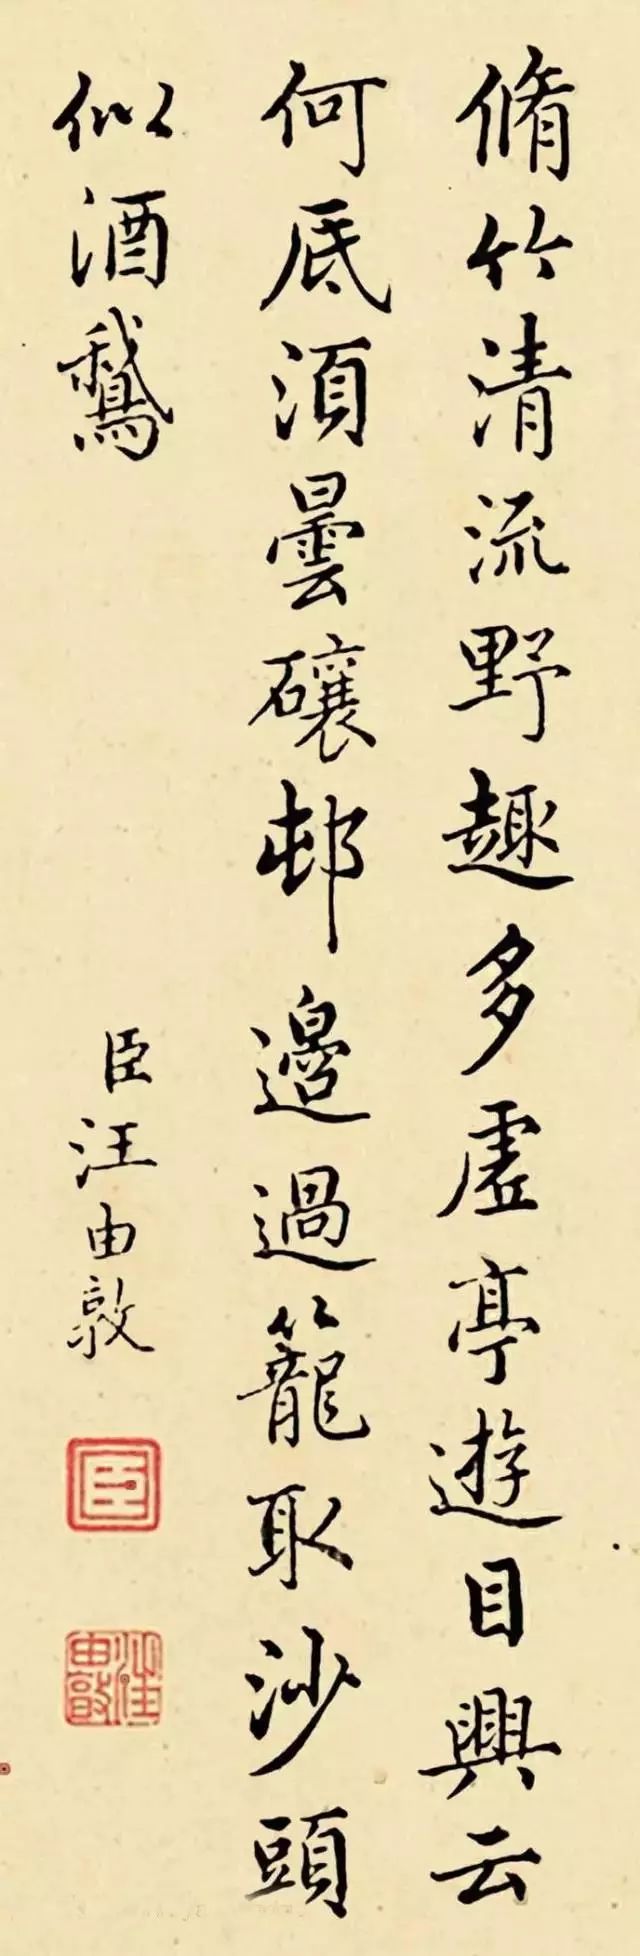 脩竹清流野趣多虛亭遊目興云
何底須曇礢邨邊過籠取沙頭
似酒鵝
臣汪由敦
臣
汪由敦